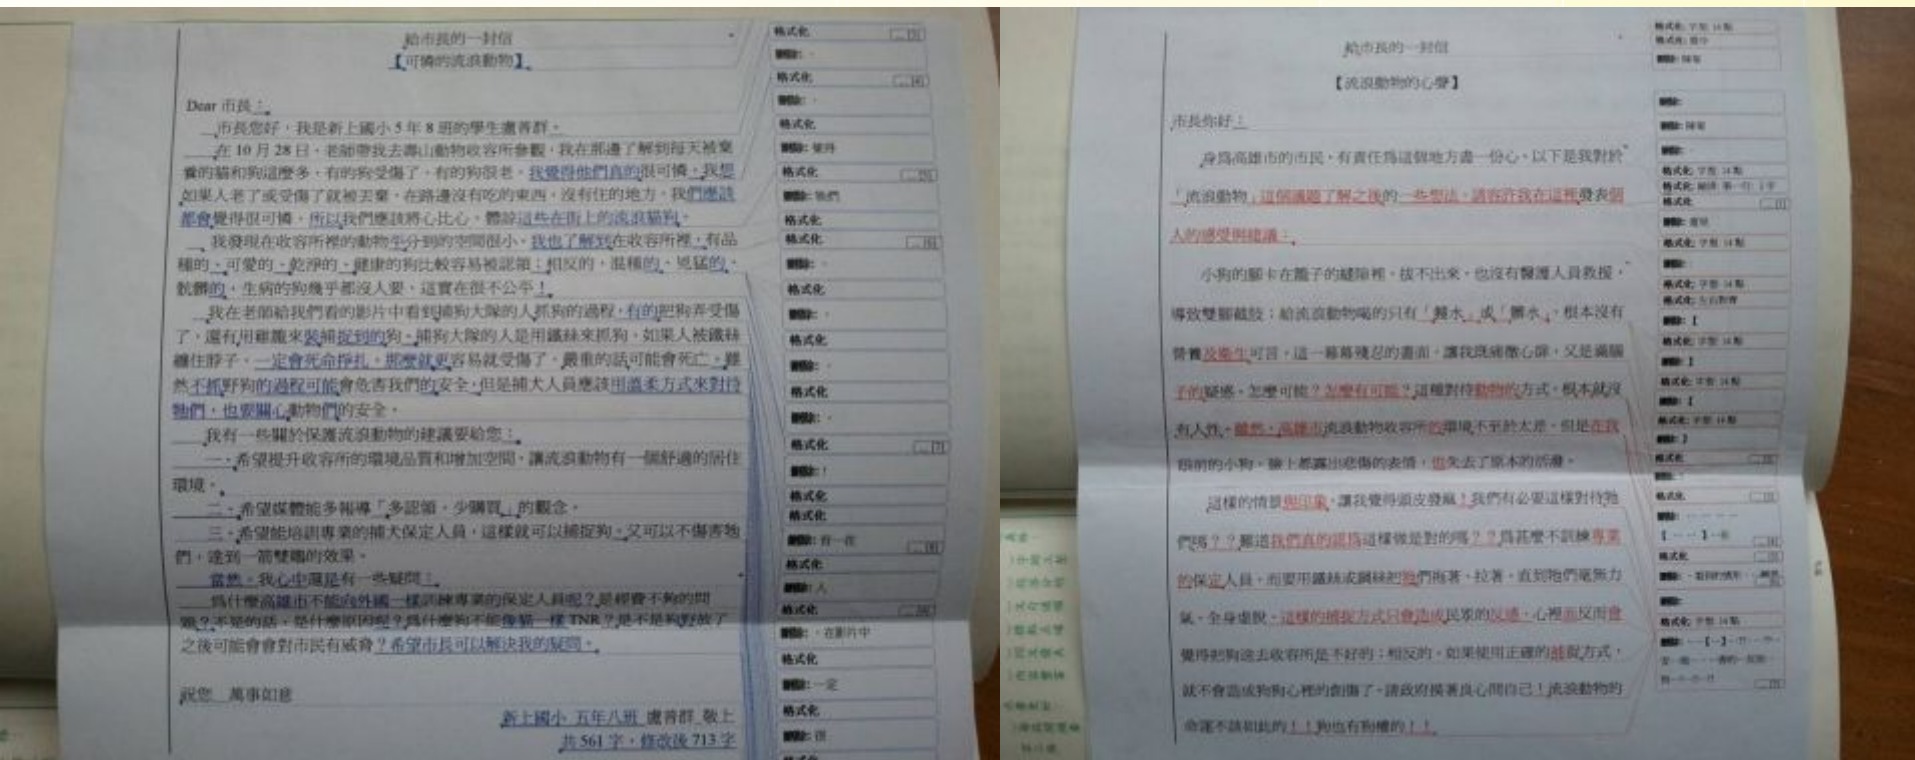 給市長的一封信
【可憐的流浪動物】
Dear 市長：
市長您好，我是新上國小 5 年 8 班的學生盧善群。
在 10 月 28 日，老師帶我去壽山動物收容所參觀，我在那邊了解到每天被棄
養的貓和狗這麼多，有的狗受傷了，有的狗很老，我覺得他們真的很可憐。我想
如果人老了或受傷了就被丟棄，在路邊沒有吃的東西，沒有住的地方，我們應該
都會覺得很可憐，所以我們應該將心比心，體諒這些在街上的流浪貓狗。
我發現在收容所裡的動物平分到的空間很小，我也了解到在收容所裡，有品
種的、可愛的、乾淨的、健康的狗比較容易被認領；相反的，混種的、兇猛的、
骯髒的、生病的狗幾乎都沒人要，這實在很不公平！
我在老師給我們看的影片中看到捕狗大隊的人抓狗的過程，有的把狗弄受傷
了，還有用雞籠來裝捕捉到的狗。捕狗大隊的人是用鐵絲來抓狗，如果人被鐵絲
纏住脖子，一定會死命掙扎，那麼就更容易就受傷了，嚴重的話可能會死亡。雖
然不抓野狗的過程可能會危害我們的安全，但是捕犬人員應該用溫柔方式來對待
牠們，也要關心動物們的安全。
我有一些關於保護流浪動物的建議要給您：
一、希望提升收容所的環境品質和增加空間，讓流浪動物有一個舒適的居住
環境。
二、希望媒體能多報導「多認領，少購買」的觀念。
三、希望能培訓專業的捕犬保定人員，這樣就可以捕捉狗，又可以不傷害牠
們，達到一箭雙鵰的效果。
當然，我心中還是有一些疑問：
為什麼高雄市不能向外國一樣訓練專業的保定人員呢？是經費不夠的問
題？不是的話，是什麼原因呢？為什麼狗不能像貓一樣 TNR？是不是狗野放了
之後可能會會對市民有威脅？希望市長可以解決我的疑問。
祝您 萬事如意
新上國小 五年八班 盧善群 敬上
共 561 字，修改後 713 字
格式化
刪除：
格式化
刪除：
格式化
格式化
刪除：牠們
格式化
格式化
刪除：
格式化
刪除：
格式化
刪除：
格式化
刪除：
格式化
刪除：！
格式化
格式化
格式化
刪除：人
格式化
刪除：，在影片中
格式化
刪除：一定
格式化
刪除：很
給市長的一封信
【流浪動物的心聲】
市長你好：
身為高雄市的市民，有責任為這個地方盡一份心，以下是我對於
「流浪動物」這個議題了解之後的一些想法，請容許我在這裡發表個
人的感受與建議：
小狗的腳卡在籠子的縫隙裡，拔不出來，也沒有醫護人員救援，
導致雙腳截肢；給流浪動物喝的只有「餿水」或「髒水」，根本沒有
營養及衛生可言。這一幕幕殘忍的畫面，讓我既痛徹心脾，又是滿腦
子的疑惑。怎麼可能？怎麼有可能？這種對待動物的方式，根本就沒
有人性。雖然，高雄市流浪動物收容所的環境不至於太差，但是在我
眼前的小狗，臉上都露出悲傷的表情，也失去了原本的活潑。
這樣的情景與印象，讓我覺得頭皮發麻！我們有必要這樣對待牠
們嗎？？難道我們真的認為這樣做是對的嗎？？為甚麼不訓練專業
的保定人員，而要用鐵絲或鋼絲把牠們拖著、拉著，直到牠們毫無力
氣、全身虛脫。這樣的捕捉方式只會造成民眾的反感，心裡面反而會
覺得把狗送去收容所是不好的；相反的，如果使用正確的捕捉方式，
就不會造成狗狗心裡的創傷了。請政府摸著良心問自己！流浪動物的
命運不該如此的！！狗也有狗權的！！
格式化：字型：14 點
格式化：置中
刪除：
格式化：字型：14 點
格式化
刪除：
格式化：字型：14 點
刪除：
格式化：字型：14 點
格式化：左右對齊
刪除：【
格式化：字型：14 點
刪除：】
格式化：字型：14 點
格式化：字型：14 點
格式化
格式化
格式化
格式化：字型：14 點